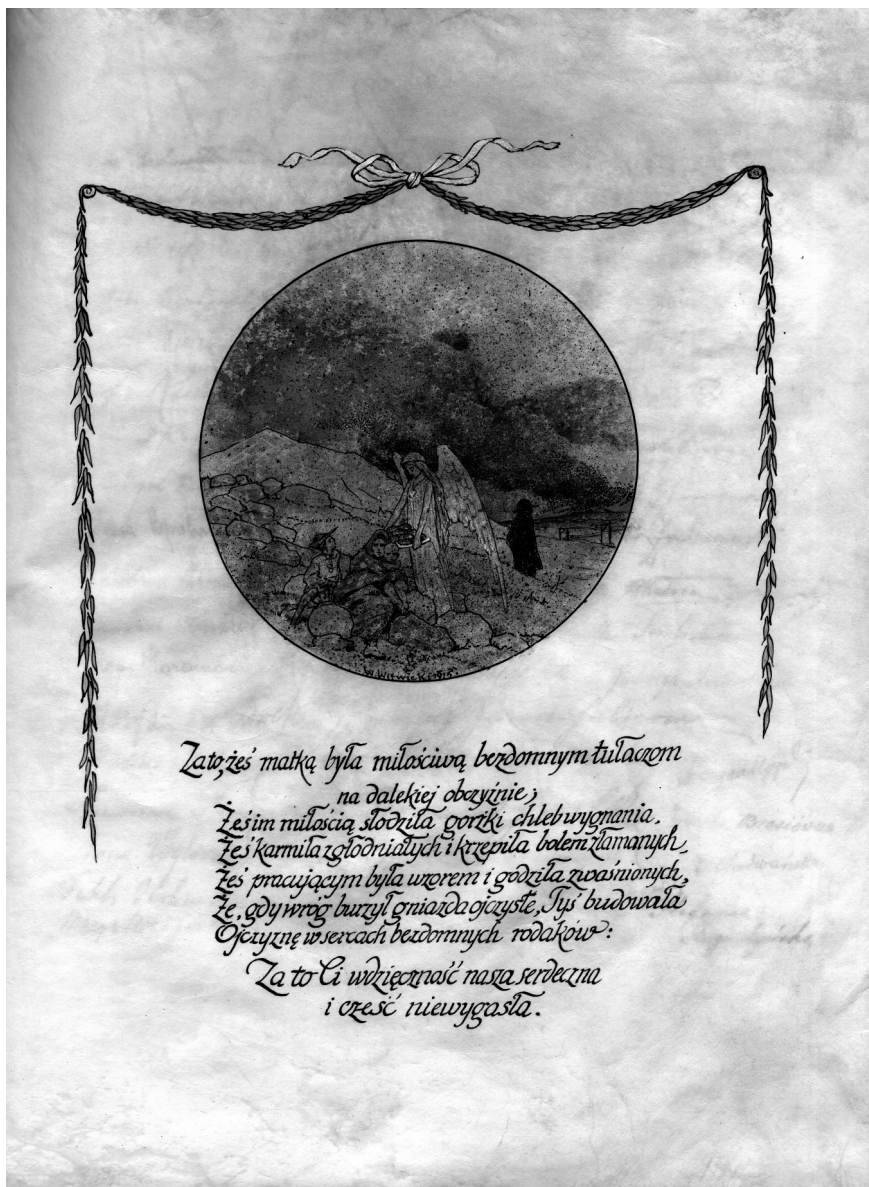 W. Witwicki 1915.
Zato, żeś matką była miłościwą bezdomnym tułaczom
na dalekiej obczyźnie;
Żeś im miłością słodziła gorzki chleb wygnania,
Żeś karmiła zgłodniałych i krzepiła bolem złamanych,
Żeś pracującym była wzorem i godziła zwaśnionych,
Że, gdy wróg burzył gniazda ojczyste, Tyś budowała
Ojczyznę w sercach bezdomnych rodaków:
Za to Ci wdzięczność nasza serdeczna
i cześć niewygasła.